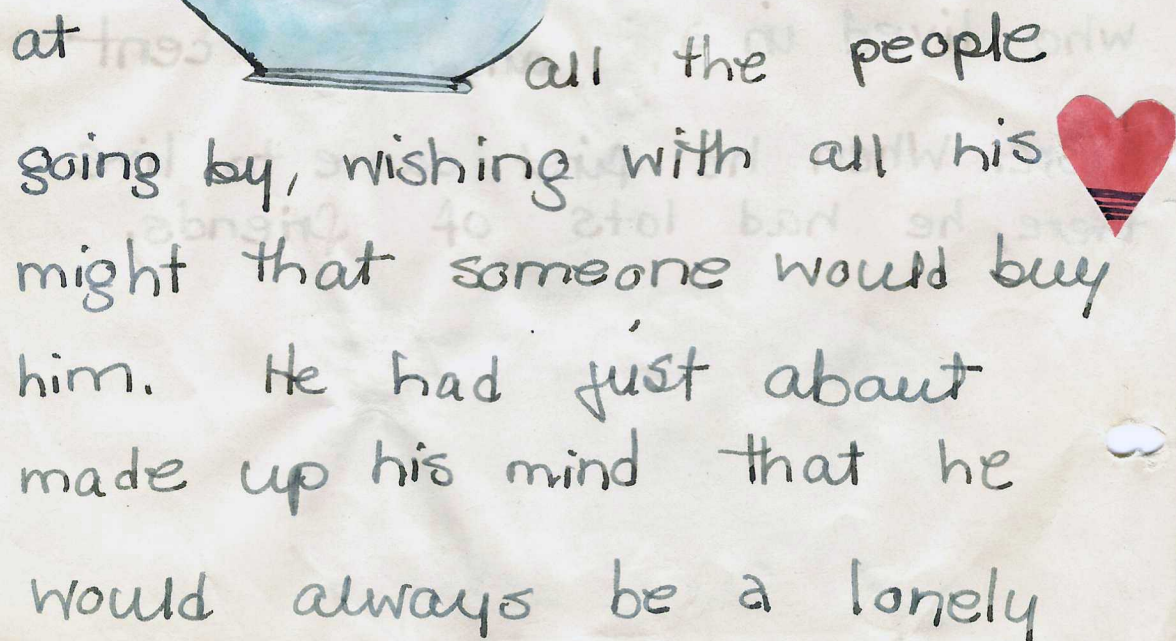 at all the people
going by, wishing with all his
might that someone would buy
him. He had just about
made up his mind that he
would always be a lonely